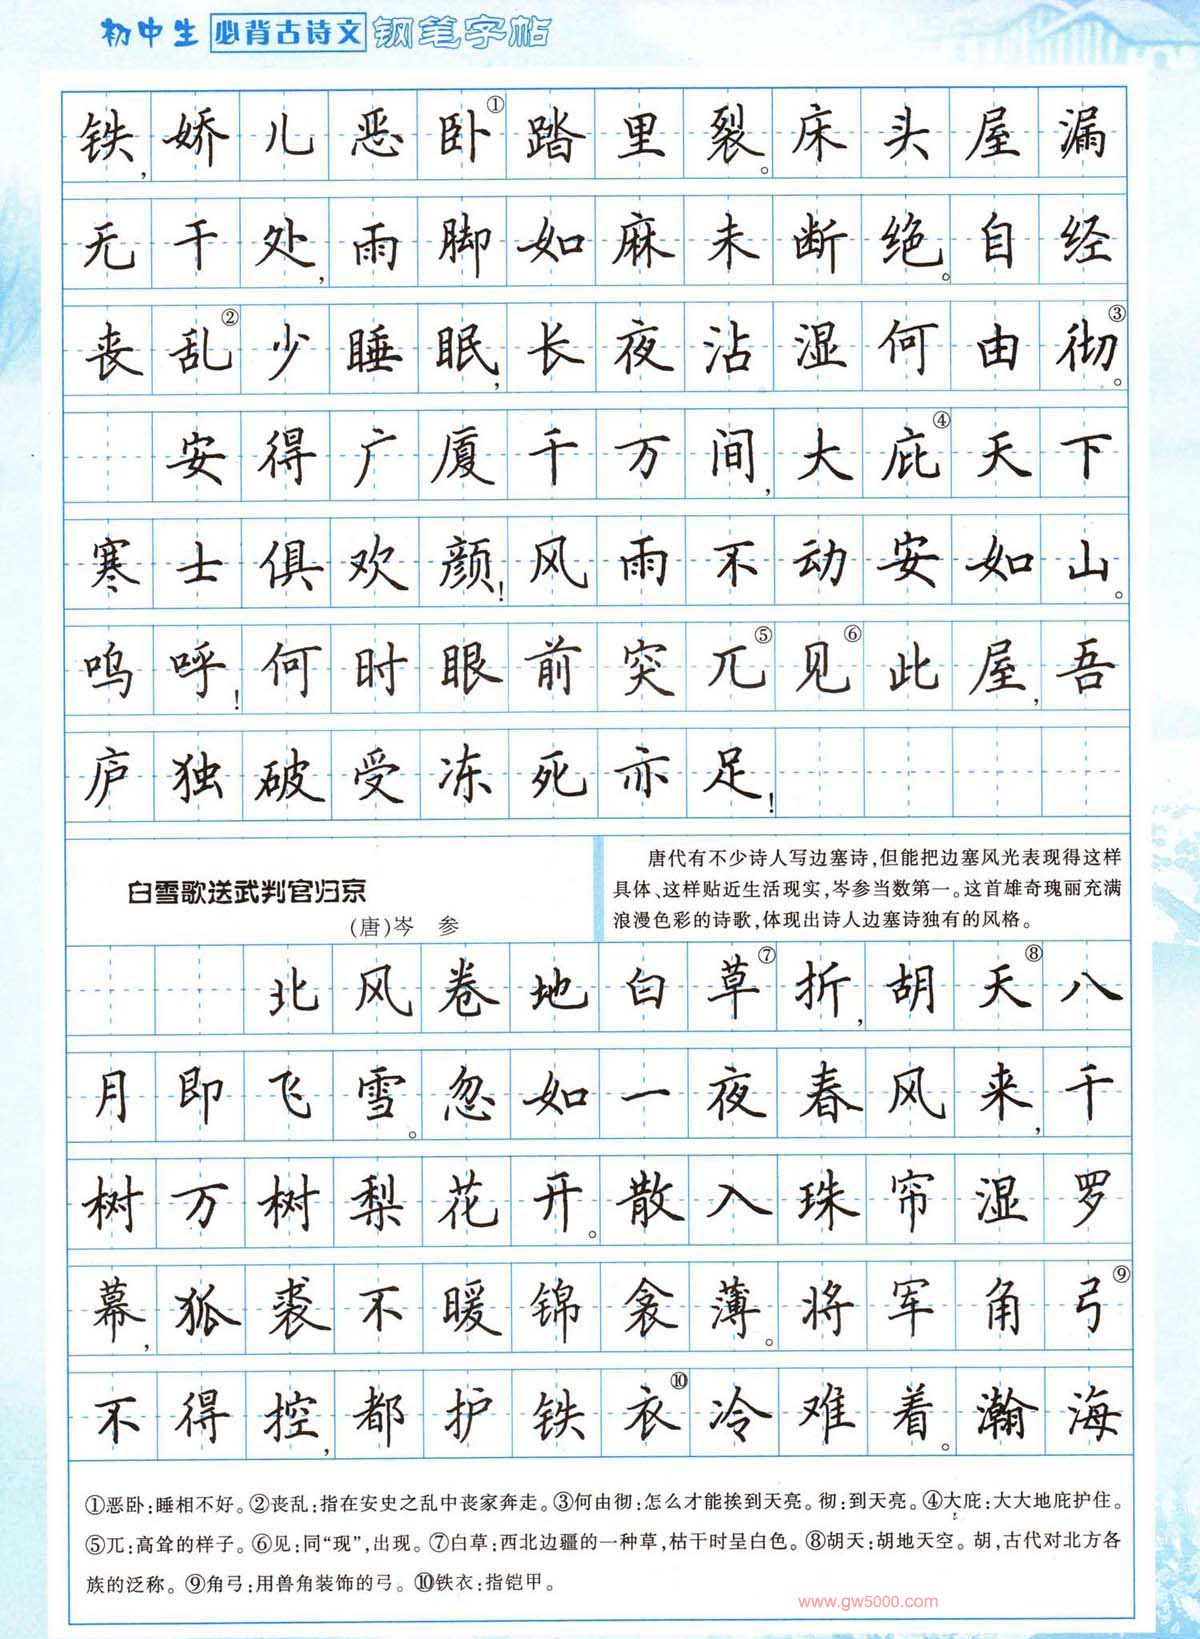 初中生 必背古诗文 钢笔字帖
铁,娇儿恶卧①踏里裂。床头屋漏
无干处,雨脚如麻未断绝。自经
丧乱②少睡眠,长夜沾湿何由彻③。
安得广厦千万间,大庇④天下
寒士俱欢颜!风雨不动安如山。
呜呼!何时眼前突兀⑤见⑥此屋,吾
庐独破受冻死亦足!
白雪歌送武判官归京
(唐)岑 参
唐代有不少诗人写边塞诗,但能把边塞风光表现得这样
具体、这样贴近生活现实,岑参当数第一。这首雄奇瑰丽充满
浪漫色彩的诗歌,体现出诗人边塞诗独有的风格。
北风卷地白草⑦折,胡天⑧八
月即飞雪。忽如一夜春风来,千
树万树梨花开。散入珠帘湿罗
幕,狐裘不暖锦衾薄。将军角弓⑨
不得控,都护铁衣⑩冷难着。瀚海
①恶卧:睡相不好。②丧乱:指在安史之乱中丧家奔走。③何由彻:怎么才能挨到天亮。彻:到天亮。④大庇:大大地庇护住。
⑤兀:高耸的样子。⑥见:同“现”,出现。⑦白草:西北边疆的一种草,枯干时呈白色。⑧胡天:胡地天空。胡,古代对北方各
族的泛称。⑨角弓:用兽角装饰的弓。⑩铁衣:指铠甲。
www.gw5000.com